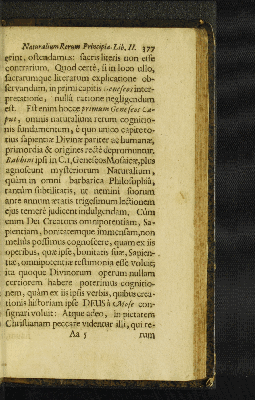 Naturalium Rerum Principia. Lib. II. 377
erint, ostendamus: sacris literis non esse
contrarium. Quod certè, si in loco ullo,
sacrarumque literarum explicatione ob-
servandum, in primi capitis Geneseos inter-
pretatione, nulla ratione negligendum
est. Est enim hocce primum Geneseos Ca-
put, omnis naturalium rerum cognitio-
nis fundamentum, è quo unico capite to-
tius sapientiæ Divinæ pariter ac humanæ,
primordia & origines rectè depromuntur.
Rabbini ipsi in C. 1. Geneseos Mosaicæ, plus
agnoscunt mysteriorum Naturalium,
quàm in omni barbarica Philosophia,
tantùm subtilitatis, ut nemini suorum
ante annum ætatis trigesimum lectionem
ejus temerè judicent indulgendam. Cùm
enim Dei Creatoris omnipotentiam, Sa-
pientiam, bonitatemque immensam, non
meliùs possimus cognoscere, quam ex iis
operibus, quæ ipse, bonitatis suæ, Sapien-
tiæ, omnipotentiæ testimonia esse voluit;
ita quoque Divinorum operum nullam
certiorem habere poterimus cognitio-
nem, quàm ex iis ipsis verbis, quibus crea-
tionis historiam ipse DEUS à Mose con-
signari voluit: Atque adeo, in pietatem
Christianam peccare videntur illi, qui re-
Aa 5 rum